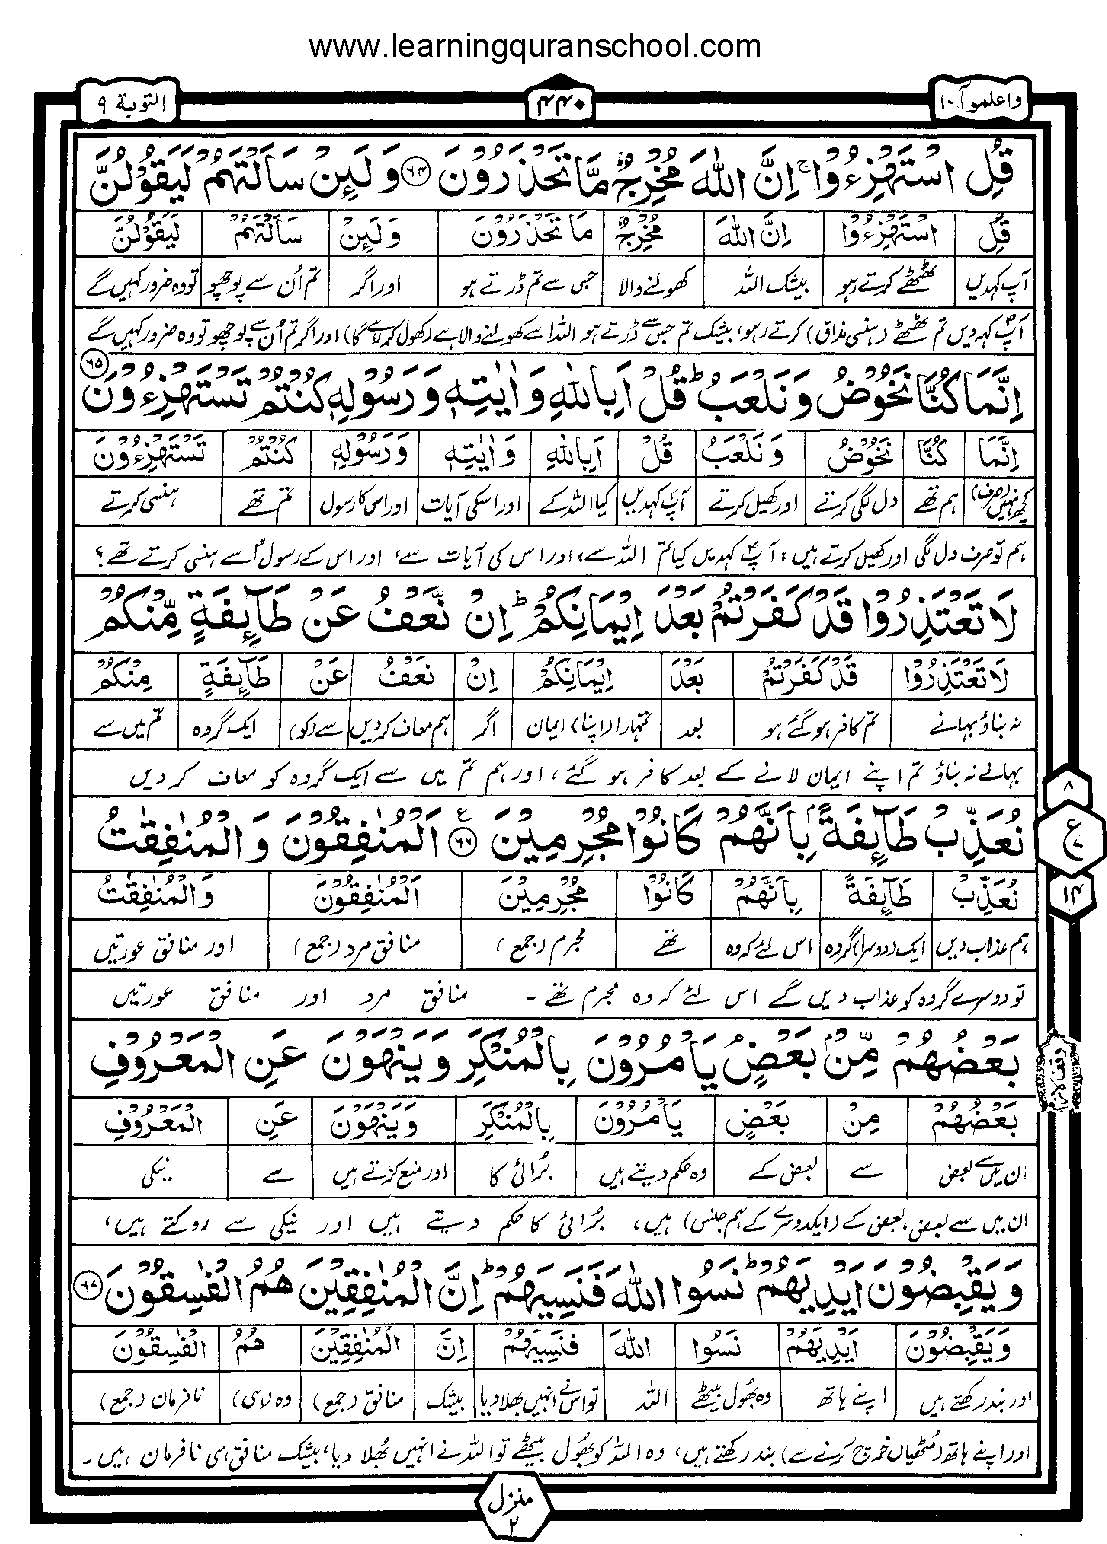 www.learningquranschool.com
واعلموآ ۱۰
۴۴۰
التوبة ۹
قُلِ اسْتَهْزِءُوْا ۚ اِنَّ اللّٰهَ مُخْرِجٌ مَّا تَحْذَرُوْنَ ۶۴ وَلَئِنْ سَاَلْتَهُمْ لَيَقُوْلُنَّ
قُلِ اسْتَهْزِءُوْا اِنَّ اللّٰهَ مُخْرِجٌ مَا تَحْذَرُوْنَ وَلَئِنْ سَاَلْتَهُمْ لَيَقُوْلُنَّ
آپ کہدیں ٹھٹھے کرتے رہو بیشک اللہ کھولنے والا جس سے تم ڈرتے ہو اور اگر تم اُن سے پوچھو تو وہ ضرور کہیں گے
آپؐ کہہ دیں تم ٹھٹھے (ہنسی مذاق) کرتے رہو، بیشک تم جس سے ڈرتے ہو اللہ اسے کھولنے والا ہے (کھول کر رہے گا) اور اگر تم اُن سے پوچھو تو وہ ضرور کہیں گے
اِنَّمَا كُنَّا نَخُوْضُ وَنَلْعَبُ ؕ قُلْ اَبِاللّٰهِ وَاٰيٰتِهٖ وَرَسُوْلِهٖ كُنْتُمْ تَسْتَهْزِءُوْنَ ۶۵
اِنَّمَا كُنَّا نَخُوْضُ وَنَلْعَبُ قُلْ اَبِاللّٰهِ وَاٰيٰتِهٖ وَرَسُوْلِهٖ كُنْتُمْ تَسْتَهْزِءُوْنَ
کچھ نہیں (صرف) ہم تھے دل لگی کرتے اور کھیل کرتے آپ کہدیں کیا اللہ کے اور اسکی آیات اور اس کا رسول تم تھے ہنسی کرتے
ہم تو صرف دل لگی اور کھیل کرتے ہیں، آپؐ کہہ دیں کیا تم اللہ سے، اور اس کی آیات سے، اور اس کے رسولؐ سے ہنسی کرتے تھے؟
لَا تَعْتَذِرُوْا قَدْ كَفَرْتُمْ بَعْدَ اِيْمَانِكُمْ ؕ اِنْ نَّعْفُ عَنْ طَآئِفَةٍ مِّنْكُمْ
لَا تَعْتَذِرُوْا قَدْ كَفَرْتُمْ بَعْدَ اِيْمَانِكُمْ اِنْ نَعْفُ عَنْ طَآئِفَةٍ مِنْكُمْ
نہ بناؤ بہانے تم کافر ہو گئے ہو بعد تمہارا (اپنا) ایمان اگر ہم معاف کر دیں سے (کو) ایک گروہ تم میں سے
بہانے نہ بناؤ تم اپنے ایمان لانے کے بعد کافر ہو گئے، اور ہم تم میں سے ایک گروہ کو معاف کر دیں
نُعَذِّبْ طَآئِفَةًۢ بِاَنَّهُمْ كَانُوْا مُجْرِمِيْنَ ۶۶ ع اَلْمُنٰفِقُوْنَ وَالْمُنٰفِقٰتُ
نُعَذِّبْ طَآئِفَةً بِاَنَّهُمْ كَانُوْا مُجْرِمِيْنَ اَلْمُنٰفِقُوْنَ وَالْمُنٰفِقٰتُ
ہم عذاب دیں ایک (دوسرا) گروہ اس لئے کہ وہ تھے مجرم (جمع) منافق مرد (جمع) اور منافق عورتیں
تو دوسرے گروہ کو عذاب دیں گے اس لئے کہ وہ مجرم تھے۔ منافق مرد اور منافق عورتیں
۸
ع ۷
۱۴
بَعْضُهُمْ مِّنْۢ بَعْضٍ يَاْمُرُوْنَ بِالْمُنْكَرِ وَيَنْهَوْنَ عَنِ الْمَعْرُوْفِ
بَعْضُهُمْ مِنْ بَعْضٍ يَاْمُرُوْنَ بِالْمُنْكَرِ وَيَنْهَوْنَ عَنِ الْمَعْرُوْفِ
ان میں سے بعض سے بعض کے وہ حکم دیتے ہیں بُرائی کا اور منع کرتے ہیں سے نیکی
ان میں سے بعض، بعض کے (ایک دوسرے کے ہم جنس) ہیں، بُرائی کا حکم دیتے ہیں اور نیکی سے روکتے ہیں،
وَيَقْبِضُوْنَ اَيْدِيَهُمْ ؕ نَسُوا اللّٰهَ فَنَسِيَهُمْ ؕ اِنَّ الْمُنٰفِقِيْنَ هُمُ الْفٰسِقُوْنَ ۶۷
وَيَقْبِضُوْنَ اَيْدِيَهُمْ نَسُوا اللّٰهَ فَنَسِيَهُمْ اِنَّ الْمُنٰفِقِيْنَ هُمُ الْفٰسِقُوْنَ
اور بند رکھتے ہیں اپنے ہاتھ وہ بھول بیٹھے اللہ تو اس نے انہیں بھلا دیا بیشک منافق (جمع) وہ (ہی) نافرمان (جمع)
اور اپنے ہاتھ (مُٹھیاں خرچ کرنے سے) بند رکھتے ہیں، وہ اللہ کو بھُول بیٹھے تو اللہ نے انہیں بھُلا دیا، بیشک منافق ہی نافرمان ہیں۔
منزل ۲